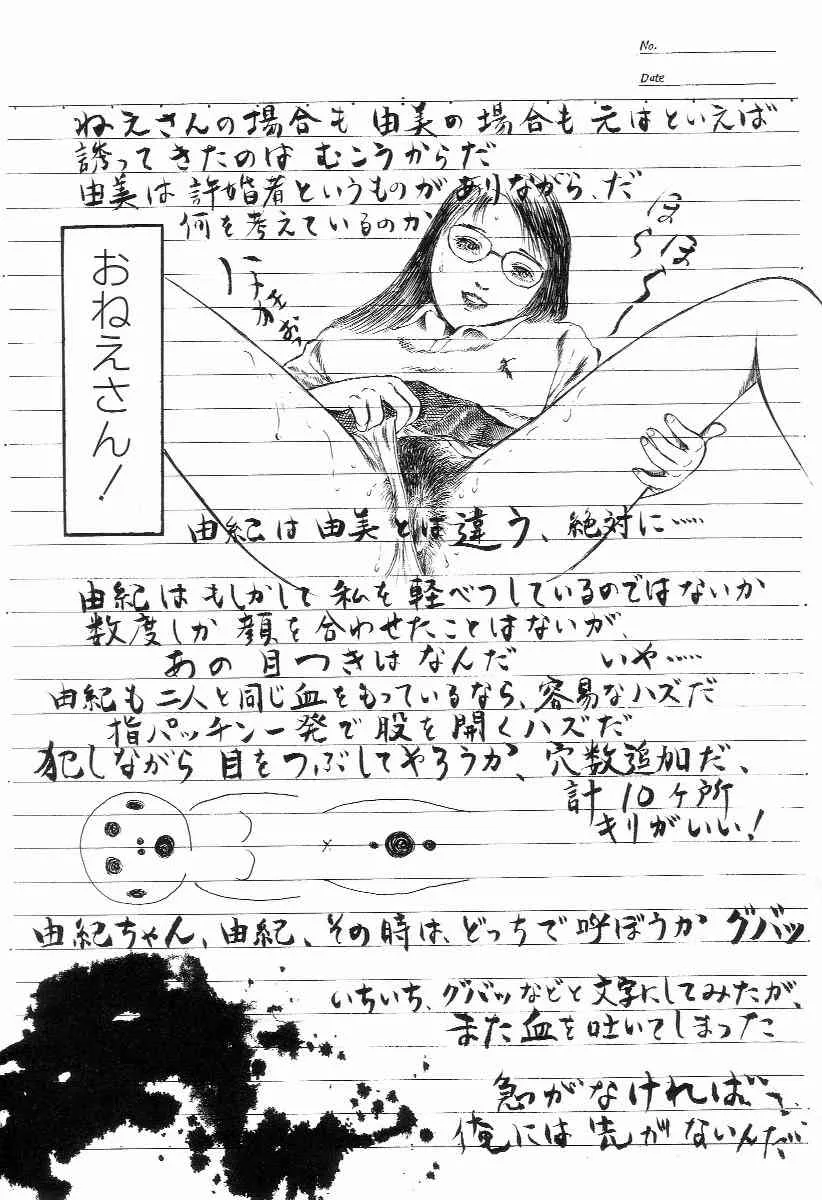 No.
Date
ねえさんの場合も 由美の場合も 元はといえば
誘ってきたのは むこうからだ
由美は許婚者というものがありながら、だ
何を考えているのか
ほーらほーら
おねえさん!
由紀は由美とは違う、絶対に……
由紀はもしかして私を軽べつしているのではないか
数度しか顔を合わせたことはないが、
あの目つきはなんだ いや……
由紀も二人と同じ血をもっているなら、容易なハズだ
指パッチン一発で股を開くハズだ
犯しながら目をつぶしてやろうか、穴数追加だ、
計10ヶ所
キリがいい!
由紀ちゃん、由紀、その時は、どっちで呼ぼうか グバッ
いちいち、グバッなどと文字にしてみたが、
また血を吐いてしまった
急がなければ
俺には先がないんだ